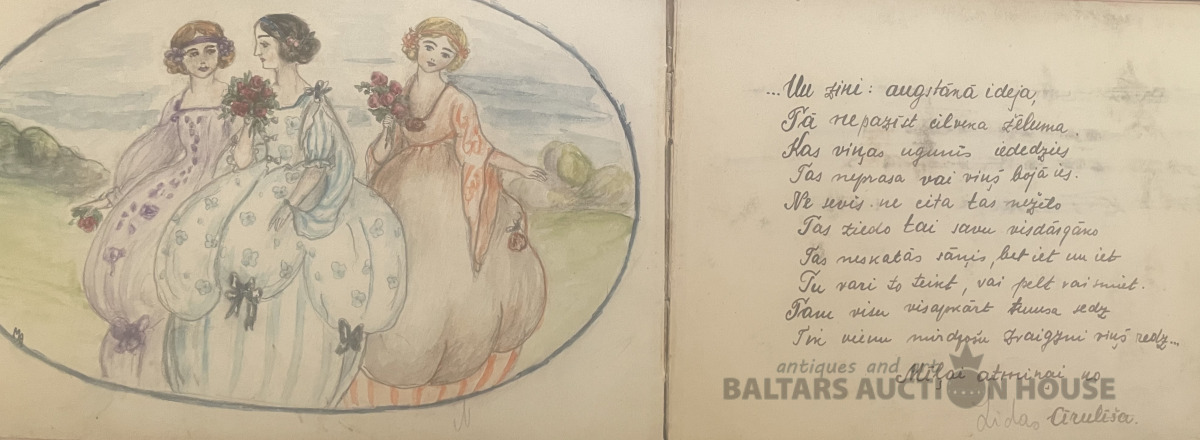 ...Un zini: augstānā ideja,
Tā nepazīst cilvēka žēluma.
Kas viņas ugunīs iededzies
Tas neprasa vai viņš bojā ies.
Ne sevis ne cita tas nežēlo
Tas ziedo tai savu visdārgāko
Tas neskatās sāņis, bet iet un iet
Tu vari to teikt, vai pelt vai smiet.
Tam visu visapkārt tumsa sedz
Tik vienu mirdzošu zvaigzni viņš redz...
Mīļai atmiņai no
Lidas Cīrulīša.
antiques and art
BALTARS AUCTION HOUSE